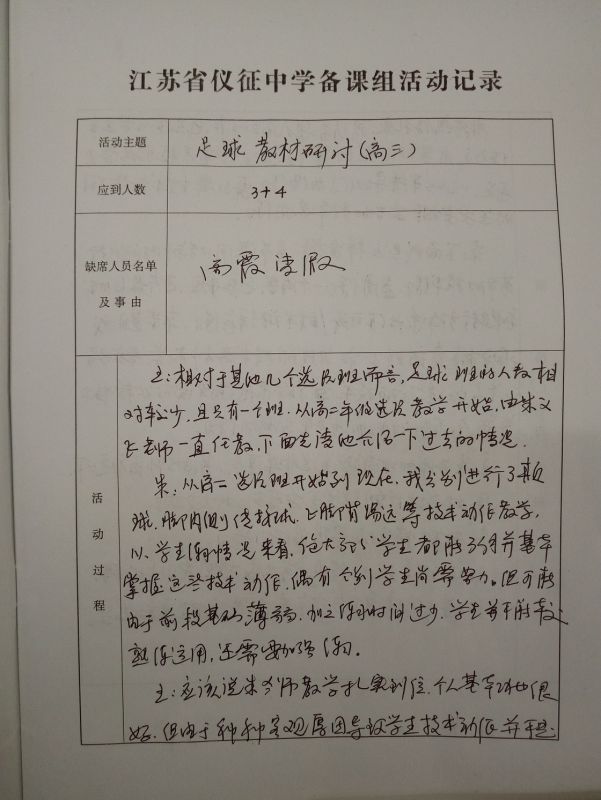 江苏省仪征中学备课组活动记录
活动主题
足球教材研讨(高三)
应到人数
3+4
缺席人员名单
及事由
高霞请假
活动过程
主:相对于其他几个选项班而言,足球班的人数相
对较少,且只有一个班.从高二年级选项教学开始,由朱义
飞老师一直任教,下面先请他介绍一下过去的情况.
朱:从高二选项班开始到现在,我分别进行了颠
球,脚内侧传接球,正脚背踢远等技术动作教学,
从学生的情况来看,绝大部分学生都能学习并基本
掌握这些技术动作.偶有个别学生尚需努力。但可能
由于前段基础薄弱,加之练习时间过少,学生并不能较
熟练运用,还需要加强练习.
主:应该说朱老师教学扎实到位,个人基本功也很
好.但由于种种客观原因导致学生技术动作并不是